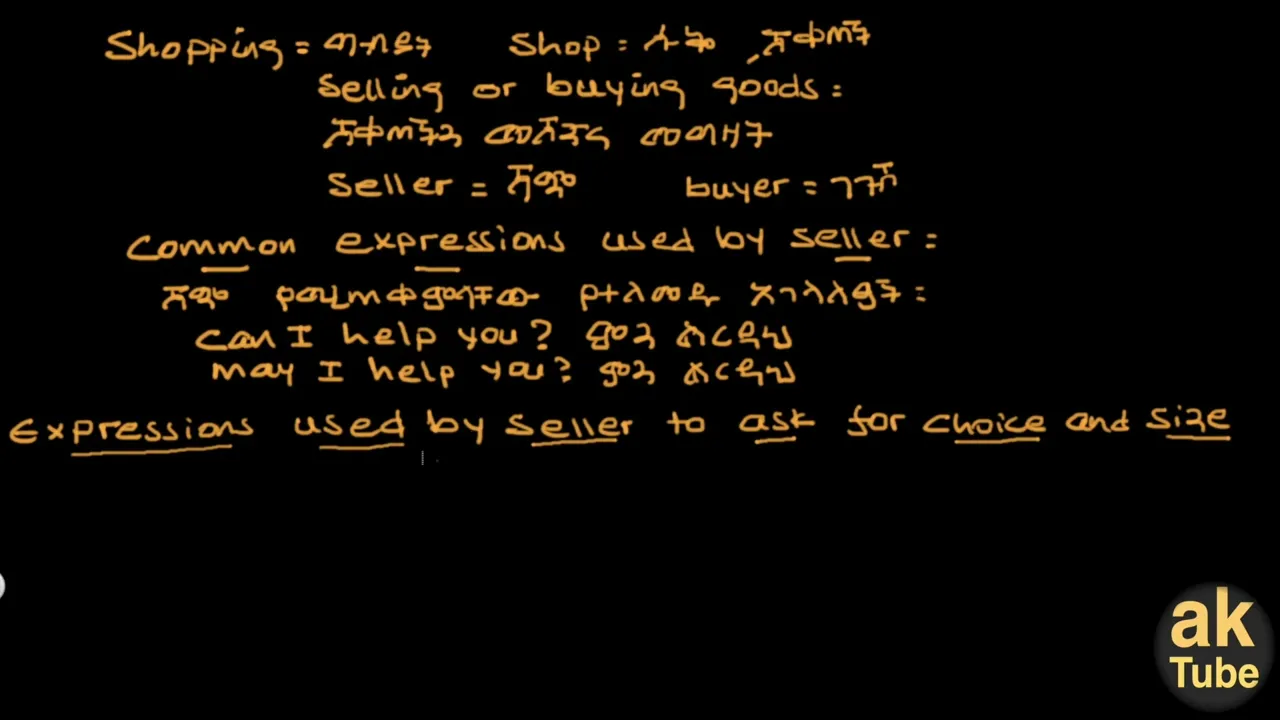 Shopping = ግብይት Shop = ሱቅ , ሸቀጣት
Selling or buying goods :
ሸቀጣትን መሸጥና መግዛት
Seller = ሻጭ buyer = ገዥ
Common expressions used by seller :
ሻጭ የሚጠቀምባቸው የተለመዱ አገላለፆች :
can I help you? ምን ልርዳህ
may I help you? ምን ልርዳህ
Expressions used by seller to ask for choice and size
ak
Tube